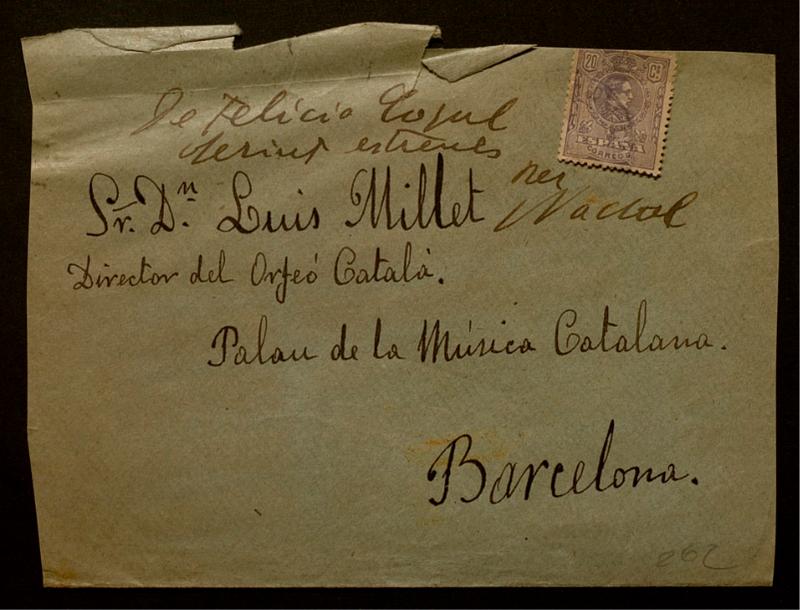 De Felicio
estrenes
per
Nadal
Sr. Dn. Luis Millet
Director del Orfeó Català.
Palau de la Música Catalana.
Barcelona.
20 Cs
CORREOS
262